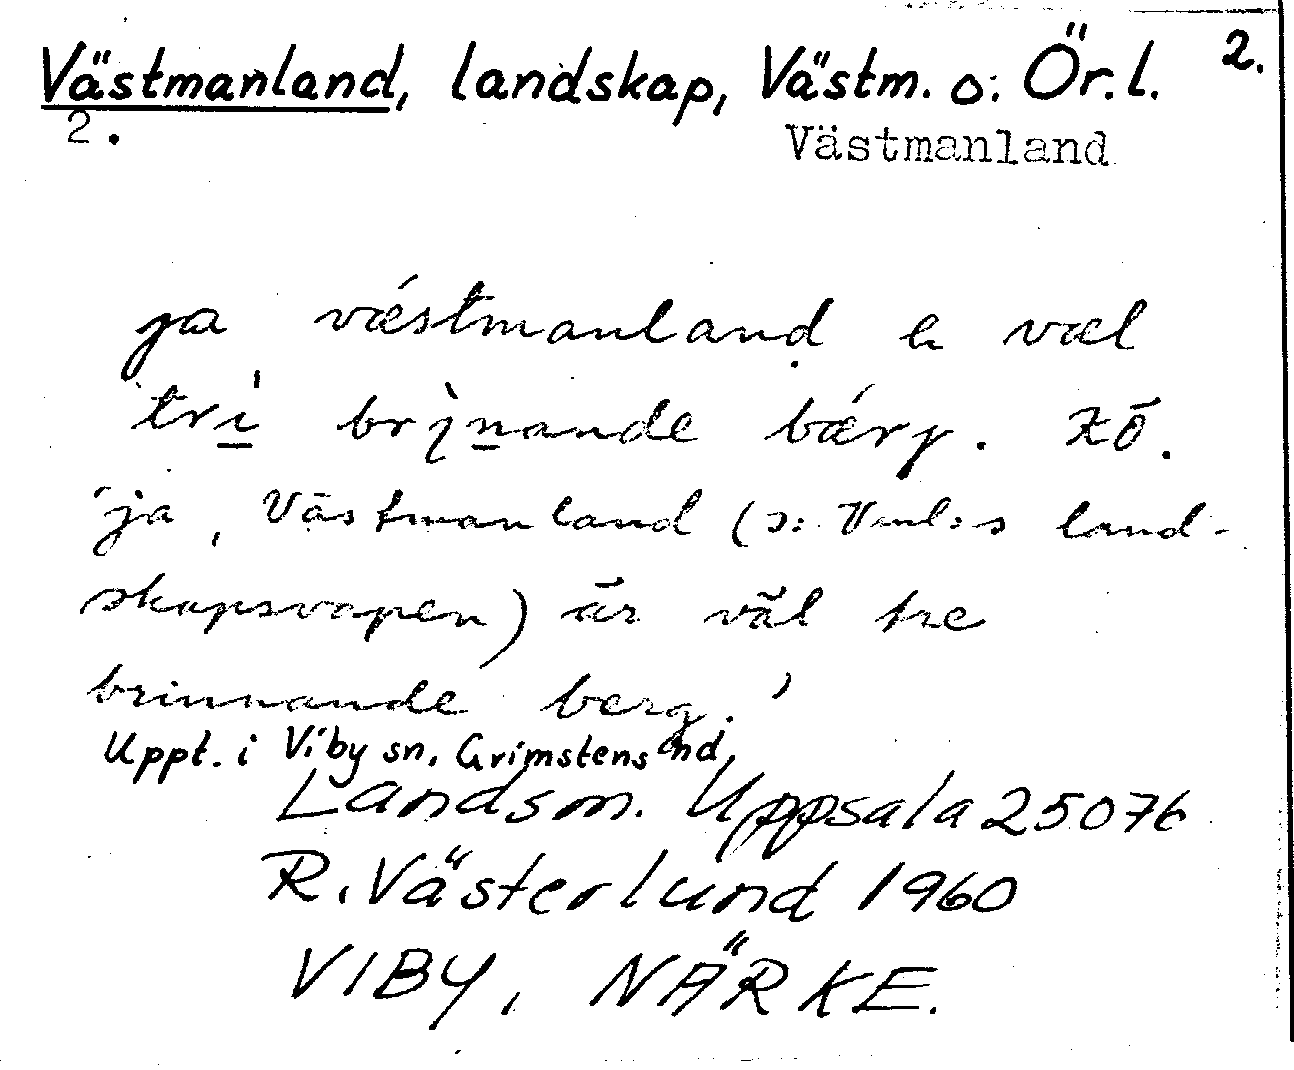 Västmanland, landskap, Västm. o. Ör. l. 2.
2. Västmanland
ja vǽstmanland e væl
tri brı̀nande bǽrj. KÖ.
'ja, Västmanland (ɔ: Vml:s land-
skapsvapen) är väl tre
brinnande berg.'
Uppt. i Viby sn, Grimstens hd,
Landsm. Uppsala 25076
R. Västerlund 1960
VIBY, NÄRKE.